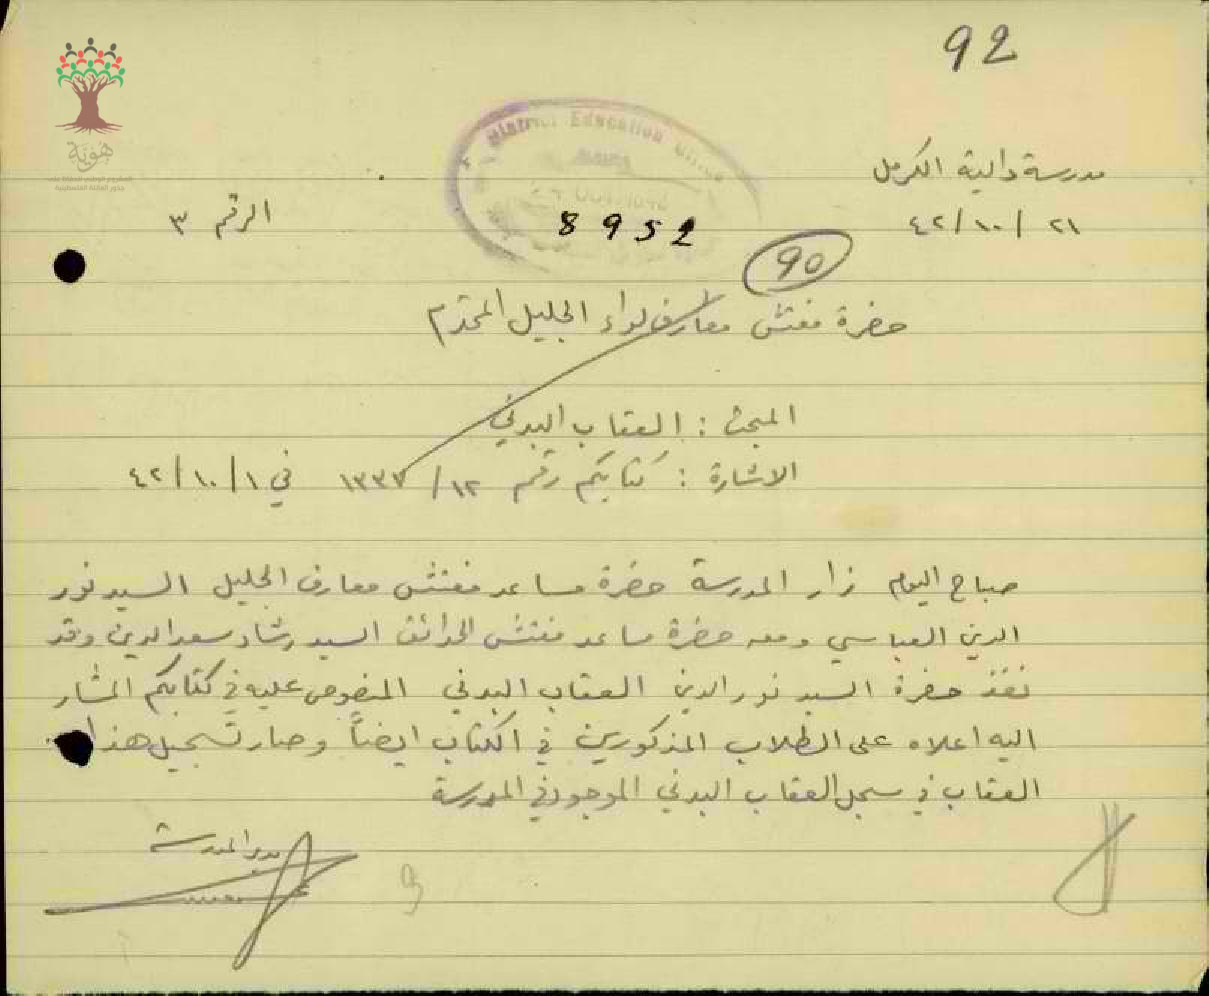 92
هوية
District Education Office
مدرسة دالية الكرمل
٢١ / ١٠ / ٤٢
الرقم ٣
8952
90
حضرة مفتش معارف لواء الجليل المحترم
المبحث : العقاب البدني
الاشارة : كتابكم رقم ١٢ / ١٣٣٧ في ١ / ١٠ / ٤٢
صباح اليوم زار المدرسة حضرة مساعد مفتش معارف الجليل السيد نور
الدين العباسي ومعه حضرة مساعد مفتش الحدائق السيد رشاد سعد الدين وقد
نفذ حضرة السيد نور الدين العقاب البدني المنصوص عليه في كتابكم المشار
اليه اعلاه على الطلاب المذكورين في الكتاب ايضاً وصار تسجيل هذا
العقاب في سجل العقاب البدني الموجود في المدرسة
مدير المدرسة